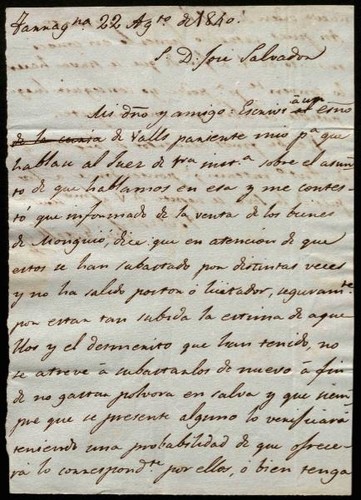 Tarrag.na 22 Ag.to de 1840.
S. D. José Salvador
Mi dño y amigo: Escriví á un esno
de la curia de Valls pariente mio p.a que
hablase al Juez de 1ra inst.a sobre el asun
to de que hablamos en esa y me contes
tó que informado de la venta de los bienes
de Monguió, dice que en atencion de que
estos se han subastado por distintas veces
y no ha salido postor ó licitador, seguram.te
por estar tan subida la estima de aque
llos y el desmerito que han tenido, no
se atreve á subastarlos de nuevo á fin
de no gastar polvora en salva y que siem
pre que se presente alguno lo verificará
teniendo una probabilidad de que ofrece
rá lo correspond.te por ellos, ó bien tenga